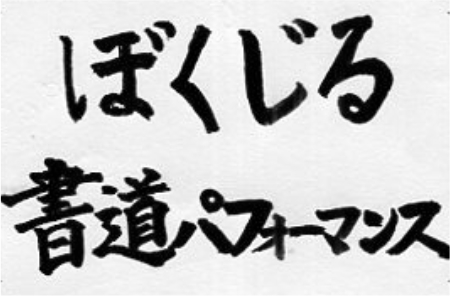 ぼくじる
書道パフォーマンス